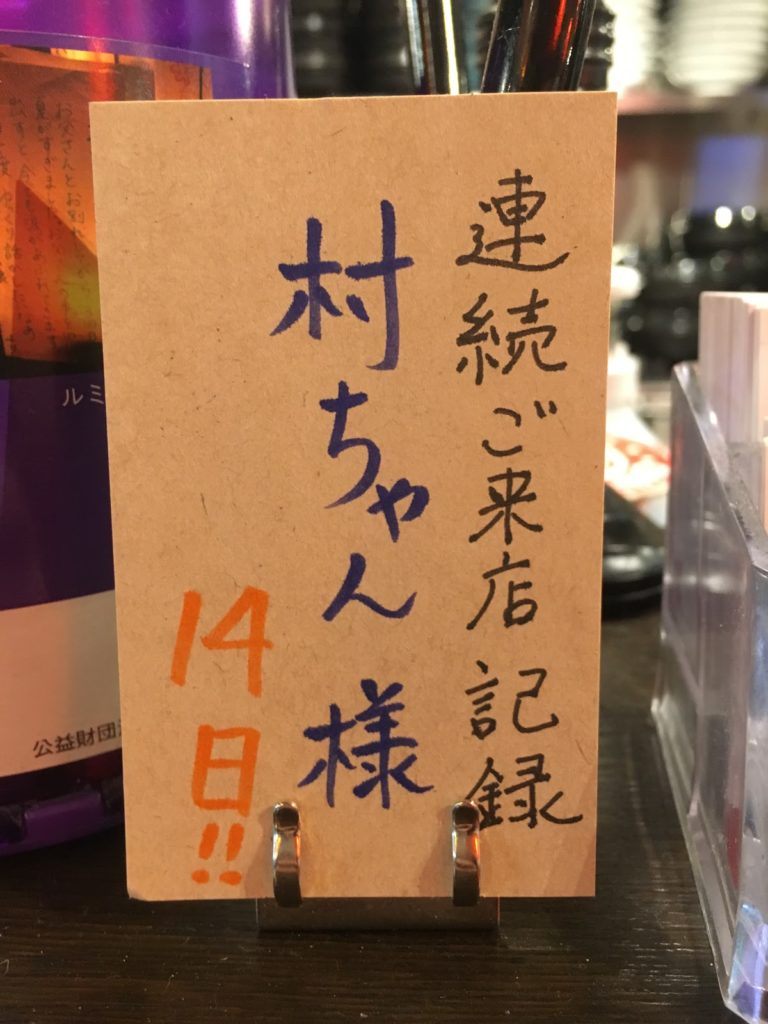 連続ご来店記録
村ちゃん様
14日!!
ルミ
公益財団